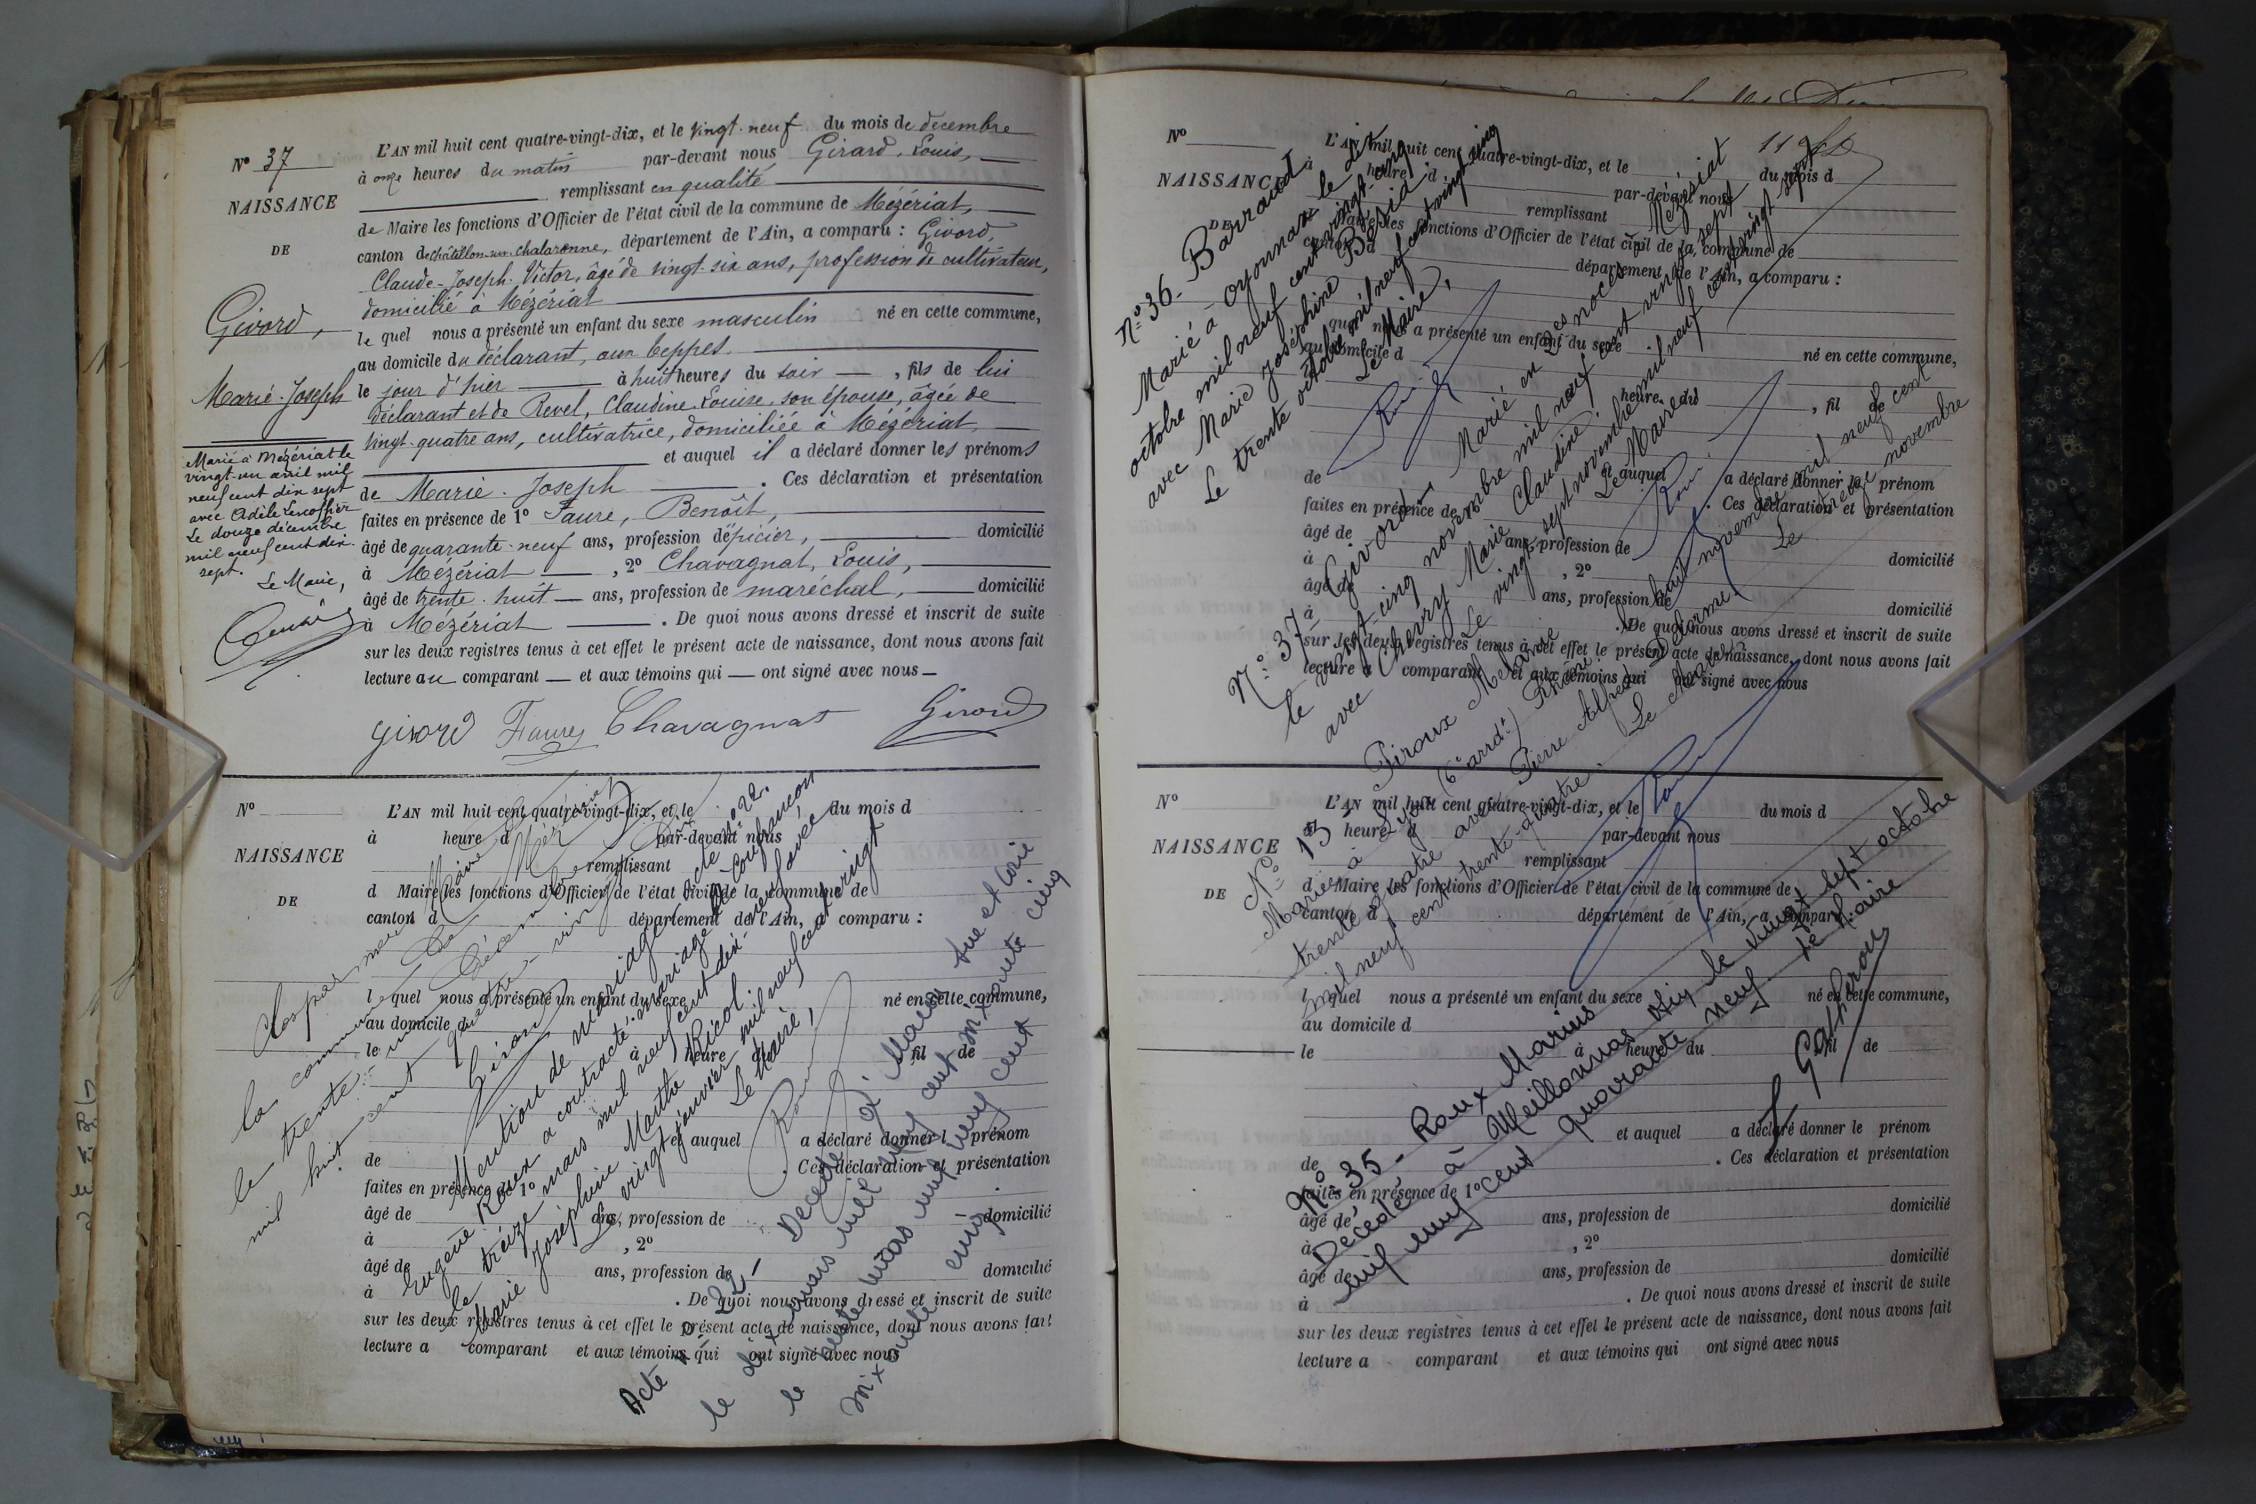 N° 37
NAISSANCE
DE
Givord,
Marie-Joseph
Marié à Mézériat le
vingt-un avril mil
neuf cent dix sept
avec Adèle
Le douze décembre
mil neuf cent dix-
sept.
Le Maire,
L'AN mil huit cent quatre-vingt-dix, et le vingt-neuf du mois de décembre
à onze heures du matin par-devant nous Girard, Louis,
remplissant en qualité
de Maire les fonctions d'Officier de l'état civil de la commune de Mézériat,
canton de Châtillon-sur-Chalaronne, département de l'Ain, a comparu : Givord,
Claude-Joseph-Victor, âgé de vingt-six ans, profession de cultivateur,
domicilié à Mézériat
le quel nous a présenté un enfant du sexe masculin né en cette commune,
au domicile du déclarant, aux Ceppes.
le jour d'hier à huit heures du soir, fils de lui
déclarant et de Revel, Claudine Louise, son épouse, âgée de
vingt-quatre ans, cultivatrice, domiciliée à Mézériat,
et auquel il a déclaré donner les prénoms
de Marie-Joseph. Ces déclaration et présentation
faites en présence de 1° Faure, Benoît,
âgé de quarante-neuf ans, profession d'épicier, domicilié
à Mézériat, 2° Chavagnat, Louis,
âgé de trente-huit ans, profession de maréchal, domicilié
à Mézériat. De quoi nous avons dressé et inscrit de suite
sur les deux registres tenus à cet effet le présent acte de naissance, dont nous avons fait
lecture au comparant et aux témoins qui ont signé avec nous
Givord Faure Chavagnat Girard
N°
NAISSANCE
DE
L'AN mil huit cent quatre-vingt-dix, et le du mois d
à heure d par-devant nous
remplissant
d Maire les fonctions d'Officier de l'état civil de la commune de
canton d département de l'Ain, a comparu :
l quel nous a présenté un enfant du sexe né en cette commune,
au domicile d
le à heure du fil de
et auquel a déclaré donner l prénom
de . Ces déclaration et présentation
faites en présence de 1°
âgé de ans, profession de domicilié
à , 2°
âgé de ans, profession de domicilié
à . De quoi nous avons dressé et inscrit de suite
sur les deux registres tenus à cet effet le présent acte de naissance, dont nous avons fait
lecture a comparant et aux témoins qui ont signé avec nous
Clos par nous Maire
la commune de Mézériat
le trente-un Décembre
mil huit cent quatre-vingt-dix
Girard
Mention de mariage acte n° 22.
Eugène a contracté mariage à
le treize mars mil neuf cent dix-neuf avec
Marie Joséphine Marthe Ricol.
Le vingt janvier mil neuf cent vingt
Le Maire,
Acte n° 22 / Décédé
le dix mars mil neuf cent soixante cinq
le trente mars mil neuf cent
soixante cinq.
N°
NAISSANCE
DE
L'AN mil huit cent quatre-vingt-dix, et le du mois d
à heure d par-devant nous
remplissant
d Maire les fonctions d'Officier de l'état civil de la commune de
canton d département de l'Ain, a comparu :
l quel nous a présenté un enfant du sexe né en cette commune,
au domicile d
le à heure du , fil de
et auquel a déclaré donner le prénom
de . Ces déclaration et présentation
faites en présence de 1°
âgé de ans, profession de domicilié
à , 2°
âgé de ans, profession de domicilié
à . De quoi nous avons dressé et inscrit de suite
sur les deux registres tenus à cet effet le présent acte de naissance, dont nous avons fait
lecture a comparant et aux témoins qui ont signé avec nous
N° 36 - Barraud
Marié à Oyonnax le dix
octobre mil neuf cent vingt-cinq
avec Marie Joséphine
Le trente octobre mil neuf cent vingt cinq
Le Maire,
N° 37 - Givord - Marié en 2es noces à Mézériat
le vingt-cinq novembre mil neuf cent vingt sept
avec Cherry Marie Claudine
Le vingt sept novembre mil neuf cent vingt-sept
Le Maire
N° 13 Piroux Mélanie
Mariée à Lyon (6e arrdt) Rhône, le huit novembre mil neuf cent
trente-quatre avec Pierre Alfred Delorme. Le treize novembre
mil neuf cent trente-quatre. Le Maire
N°
NAISSANCE
DE
L'AN mil huit cent quatre-vingt-dix, et le du mois d
à heure d par-devant nous
remplissant
d Maire les fonctions d'Officier de l'état civil de la commune de
canton d département de l'Ain, a comparu :
l quel nous a présenté un enfant du sexe né en cette commune,
au domicile d
le à heure du fil de
et auquel a déclaré donner le prénom
de . Ces déclaration et présentation
faites en présence de 1°
âgé de ans, profession de domicilié
à , 2°
âgé de ans, profession de domicilié
à . De quoi nous avons dressé et inscrit de suite
sur les deux registres tenus à cet effet le présent acte de naissance, dont nous avons fait
lecture a comparant et aux témoins qui ont signé avec nous
N° 35 - Roux Marius
Décédé à Meillonnas Ain le vingt sept octobre
mil neuf cent quarante neuf Le Maire